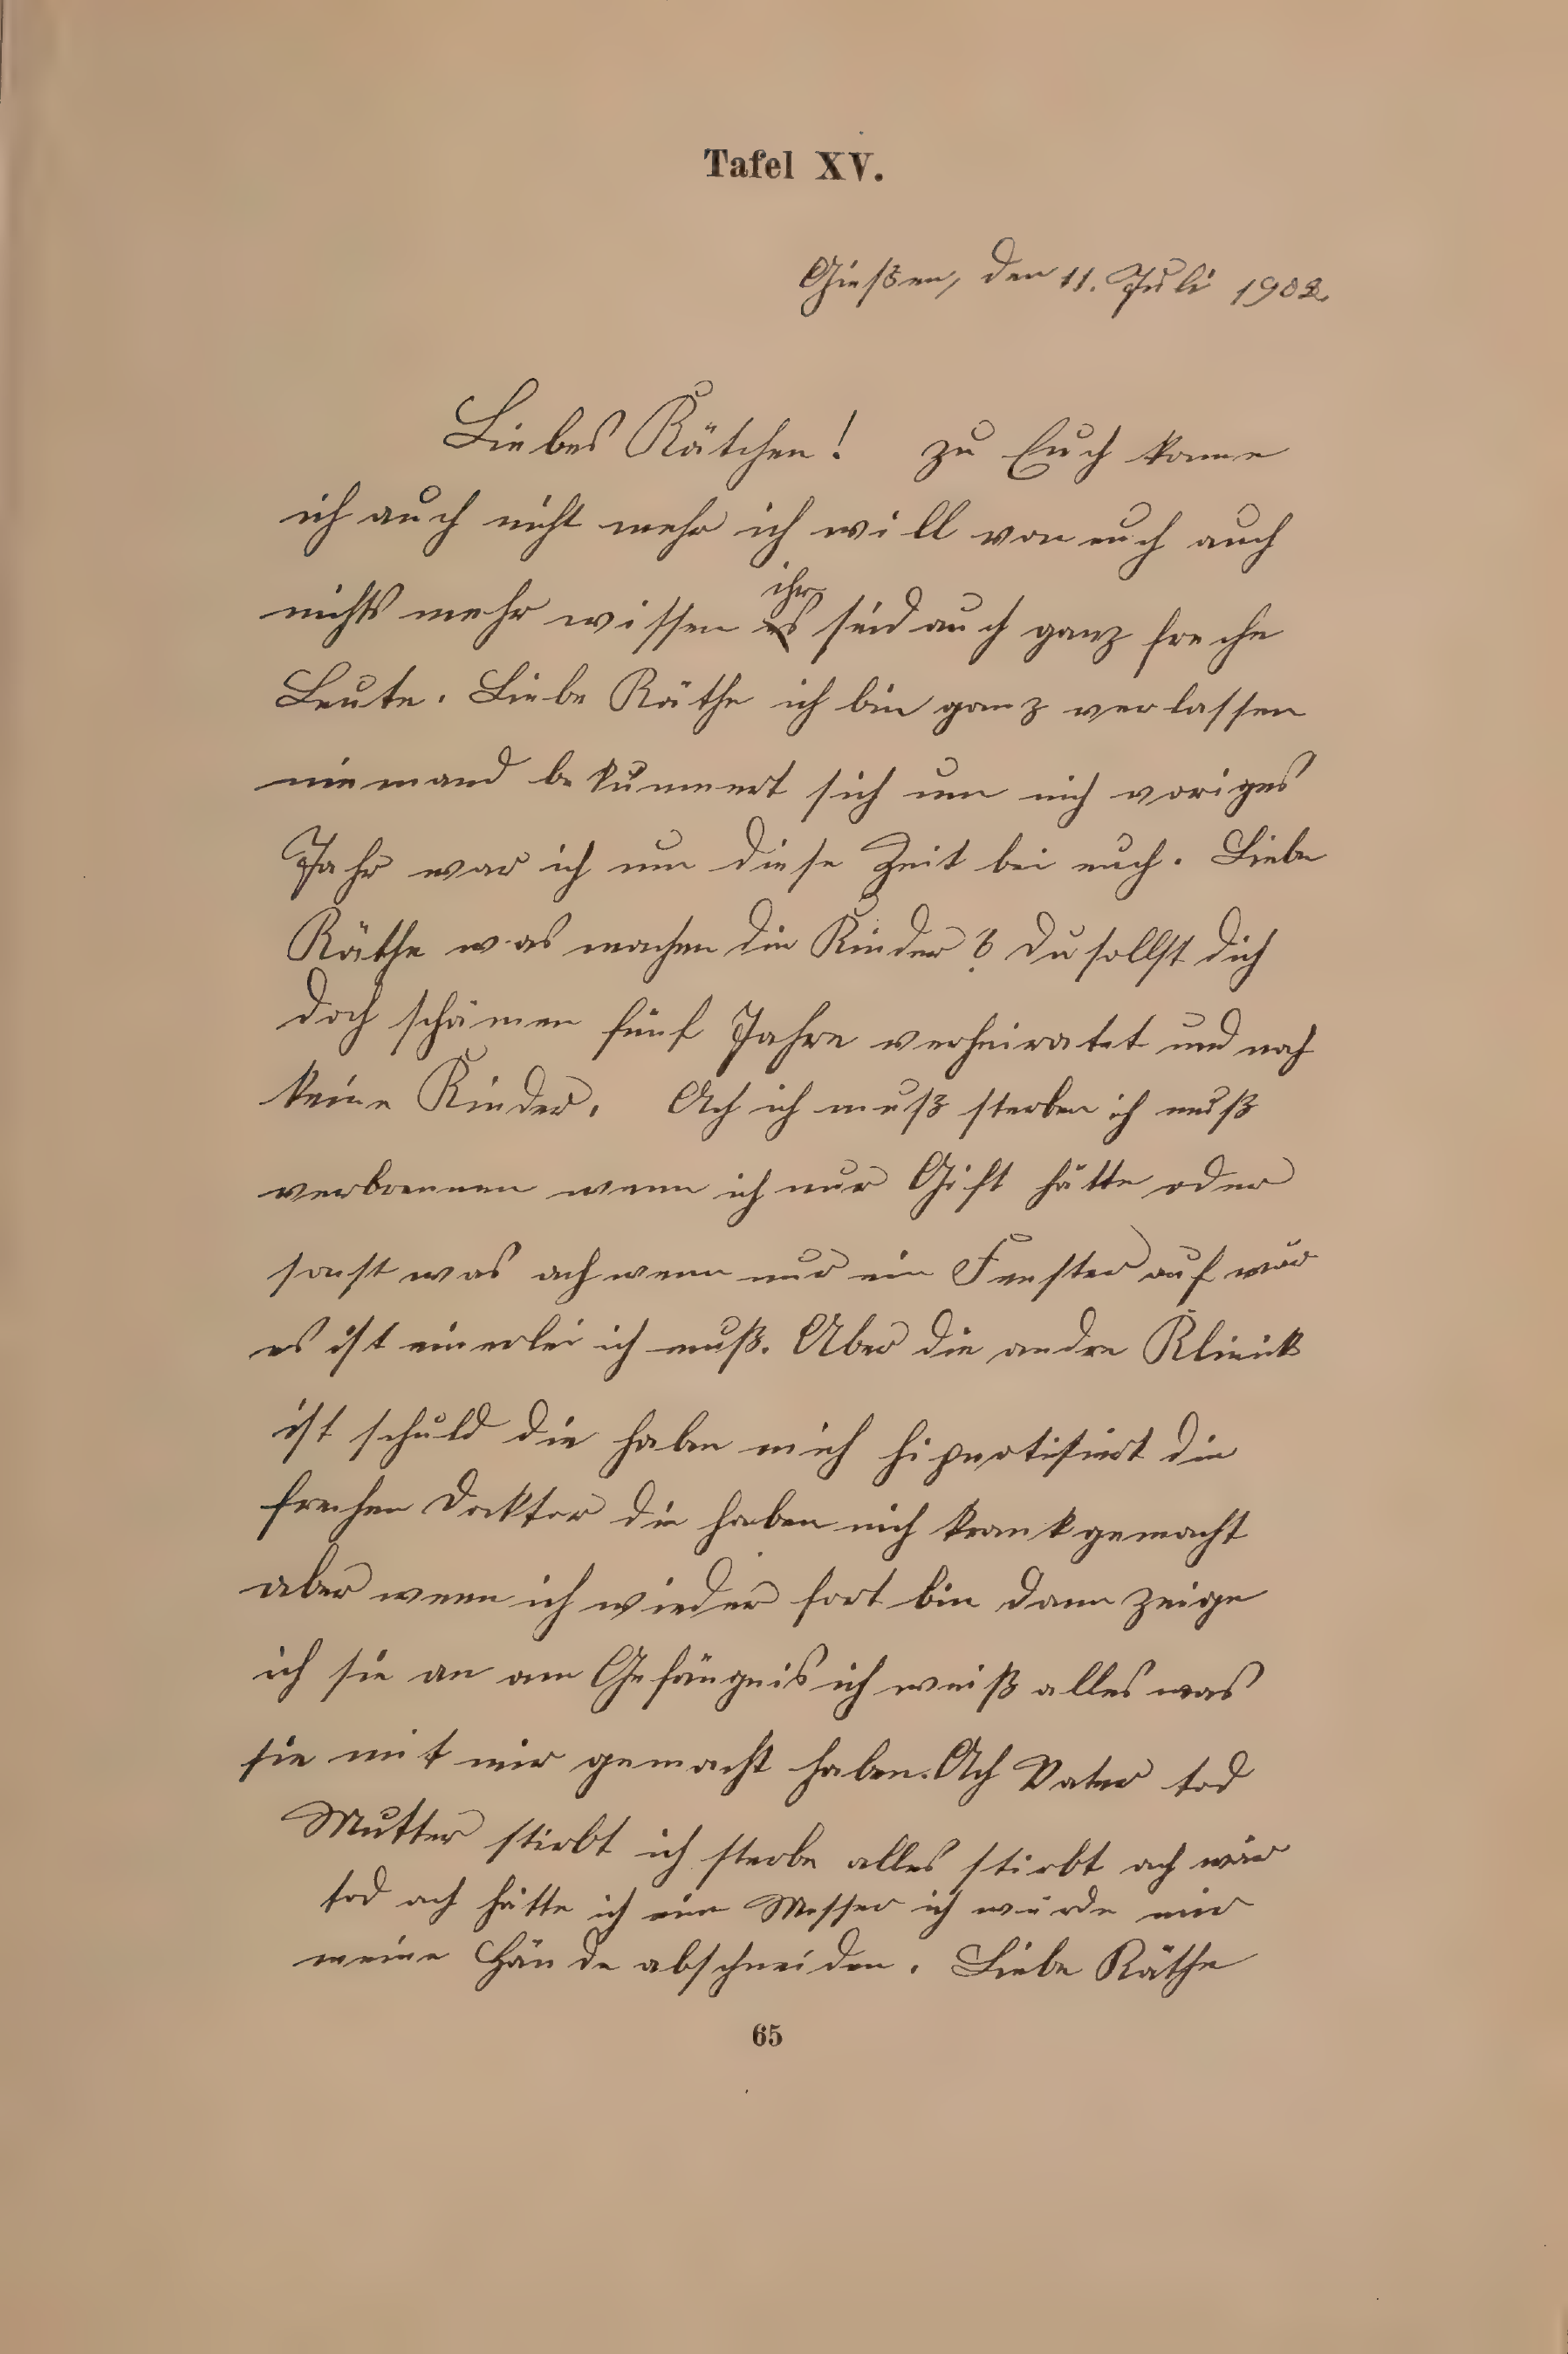 Tafel XV.
Gießen, den 11. Juli 1902.
Liebes Kätchen! zu Euch komme
ich auch nicht mehr ich will von euch auch
nichts mehr wissen ihr seid auch ganz freche
Leute. Liebe Käthe ich bin ganz verlassen
niemand bekümmert sich um mich voriges
Jahr war ich um diese Zeit bei euch. Liebe
Käthe was machen die Kinder? Du sollst dich
doch schämen fünf Jahre verheiratet und noch
keine Kinder. Ach ich muß sterben ich muß
verbrennen wenn ich nur Gift hätte oder
sonst was ach wenn nur ein Fenster auf wär
es ist einerlei ich muß. Aber die andre Klinick
ist schuld die haben mich hipnotisiert die
frechen Doktor die haben mich krank gemacht
aber wenn ich wieder fort bin dann zeige
ich sie an am Gefängnis ich weiß alles was
sie mit mir gemacht haben. Ach Vater tod
Mutter stirbt ich sterbe alles stirbt ach wär
tod ach hätte ich ein Messer ich würde mir
meine Hände abschneiden. Liebe Käthe
65